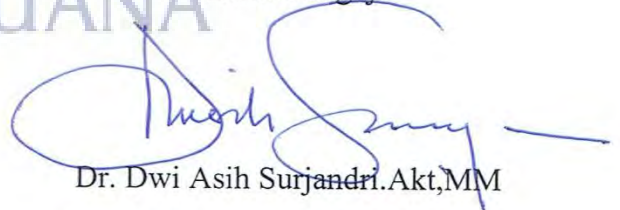 UANA
Dr. Dwi Asih Surjandri.Akt,MM